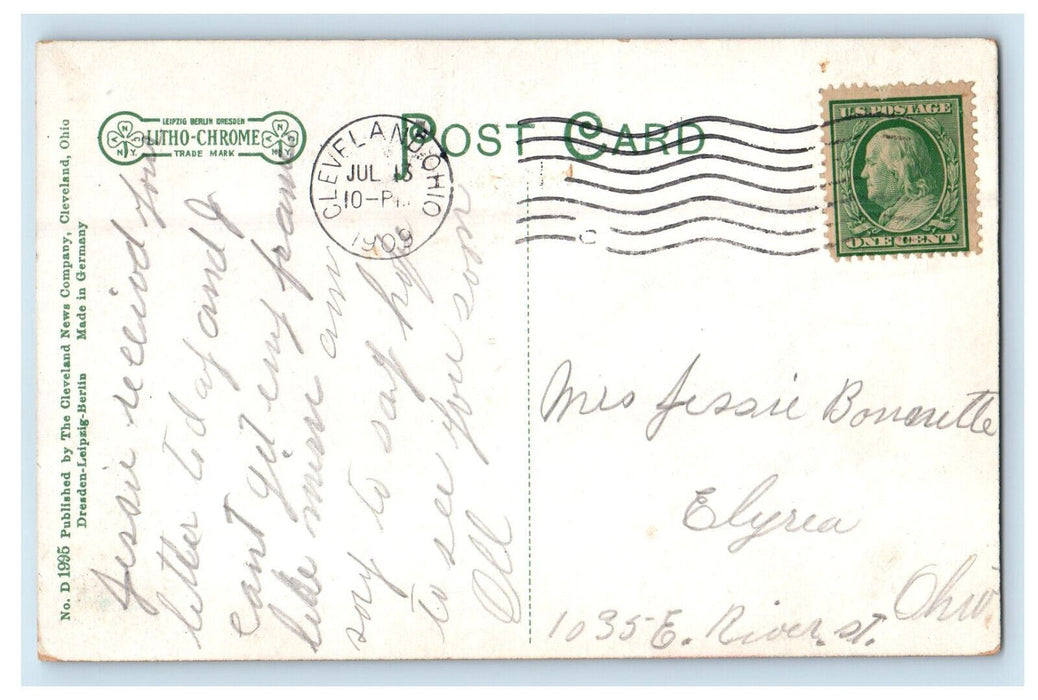 No. D 1995 Published by The Cleveland News Company, Cleveland, Ohio
Dresden-Leipzig-Berlin Made in Germany
LEIPZIG BERLIN DRESDEN
LITHO-CHROME
TRADE MARK
A N N.Y.
A N N.Y.
POST CARD
CLEVELAND, OHIO
JUL 13
10-PM
1909
C
U.S. POSTAGE
ONE CENT
Jessie recievd your
letter to day and I
cant git eny frame
like mine am
sory to say hope
to see you soon
Mrs Jessie
Elyrea
Ohio
1035 E. River. st.